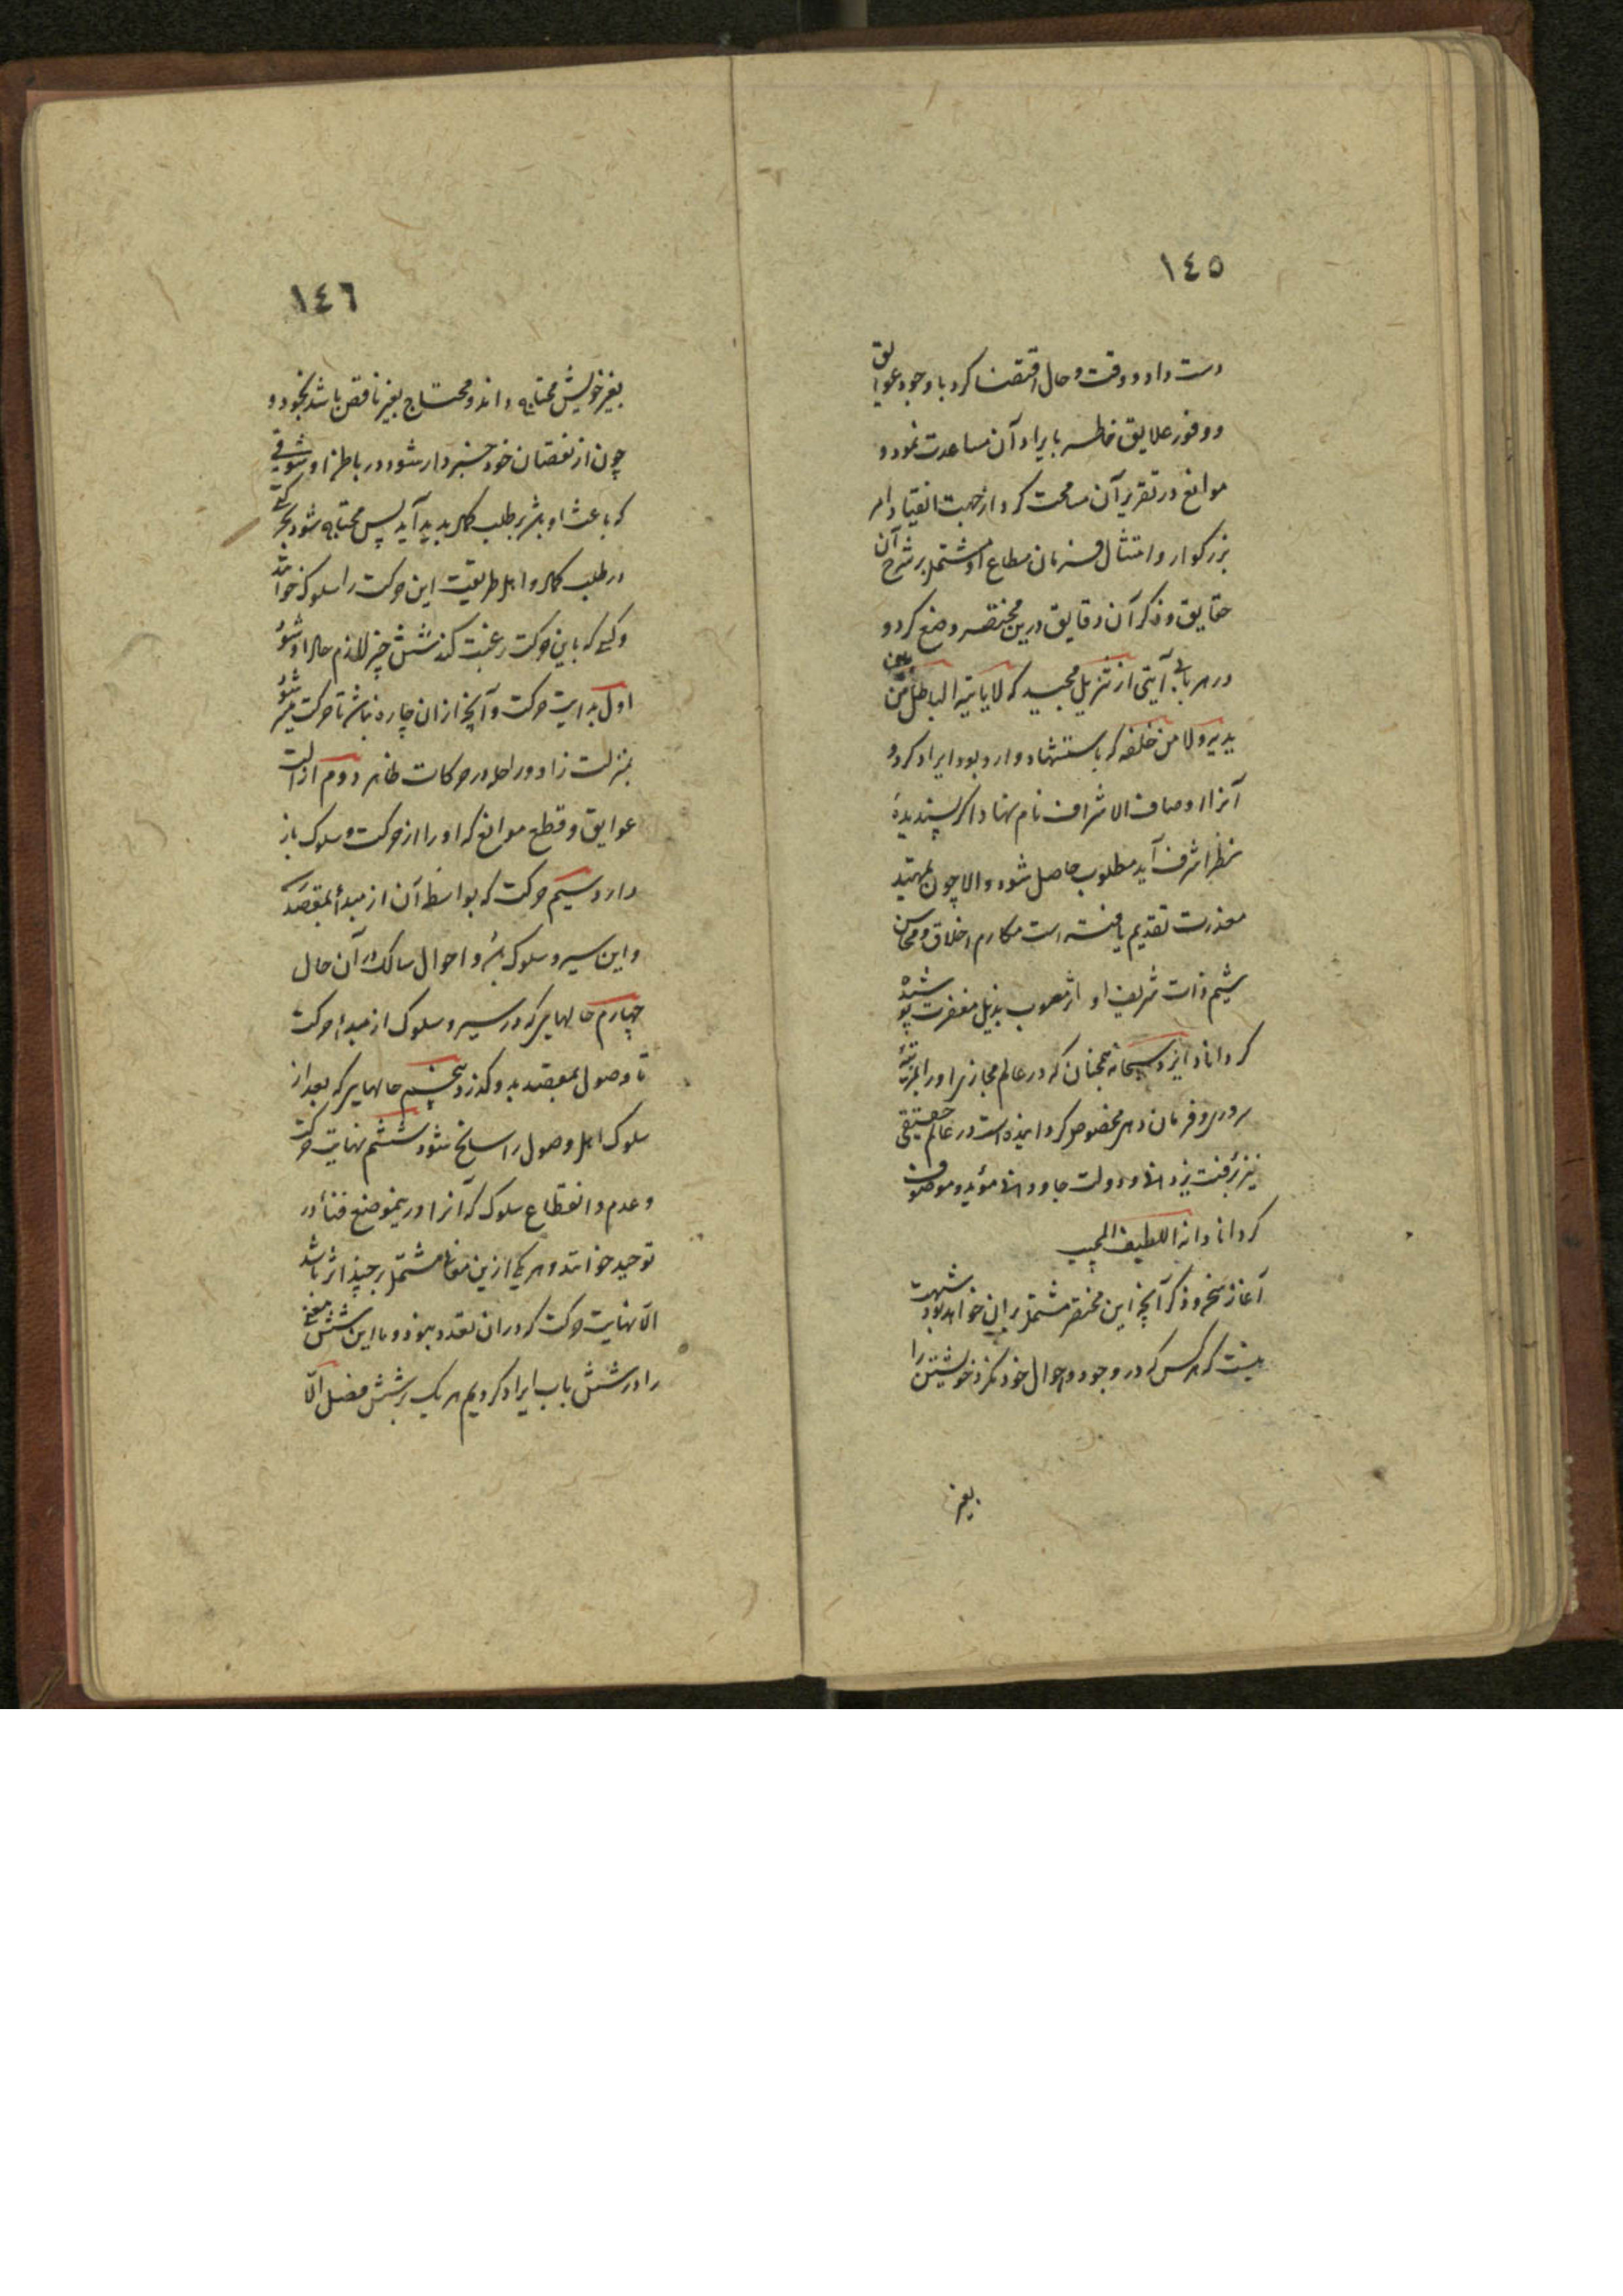 ١٤٥
دست داد و وقت و حال اقتضا کرد با وجود عوایق
و وفور علایق خاطر بایراد آن مساعدت نمود و
موانع در تقریر آن مسامحت کرد از جهت انقیاد امر
بزرکوار و امتثال فرمان مطاع او مشتمل بر شرح آن
حقایق و ذکر آن دقایق درین مختصر وضع کرد و
در هر بابی آیتی از تنزیل مجید که لا یاتیه الباطل من بین
یدیه و لا من خلفه که باستشهاد وارد بود ایراد کرد و
آنرا اوصاف الاشراف نام نهاد اکر پسندیدهٔ
نظر اشرف آید مطلوب حاصل شود و الا چون تمهید
معذرت تقدیم یافته است مکارم اخلاق و محاسن
شیم ذات شریف او اثر معیوب بذیل مغفرت پوشیده
کرداناد ایزد سبحانه همچنان که در عالم مجازی او را بمرتبهٔ
سروری و فرمان دهی مخصوص کردانیده است در عالم حقیقی
نیز برفعت یزدانی و دولت جاودانی مؤید و موصوف
کرداناد انه اللطیف المجیب
آغاز سخن و ذکر آنچه این مختصر مشتمل بر ان خواهد بود شبهت
نیست که هر کس که در وجود و احوال خود نکرد خویشتن را
بغیر
١٤٦
بغیر خویش محتاج داند و محتاج بغیر ناقص باشد بخود و
چون از نقصان خود خبردار شود در باطن او شوقی
که باعث او باشد بر طلب کمال پدید آید پس محتاج شود بحرکتی
در طلب کمال و اهل طریقت این حرکت را سلوک خوانند
و کسی که باین حرکت رغبت کند شش چیز لازم حال او شود
اول بدایت حرکت و آنچه از ان چاره نباشد تا حرکت میسر شود
بمنزلت زاد و راحله در حرکات ظاهر دوم ازالت
عوایق و قطع موانع که او را از حرکت و سلوک باز
دارد سیم حرکت که بواسطه آن از مبدأ بمقصد رسد
و این سیر و سلوک باشد و احوال سالک در آن حال
چهارم حالهایی که در سیر و سلوک از مبدأ حرکت
تا وصول بمقصد بدو کذرد پنجم حالهایی که بعد از
سلوک اهل وصول را سانح شود ششم نهایت حرکت
و عدم و انقطاع سلوک که آنرا درینموضع فناء در
توحید خوانند و هر یکی ازین معانی مشتمل بر چند اثر باشد
الّا نهایت حرکت که در ان تعدد نبود و ما این شش معنی
را در شش باب ایراد کردیم هر یک بر شش فصل الّا